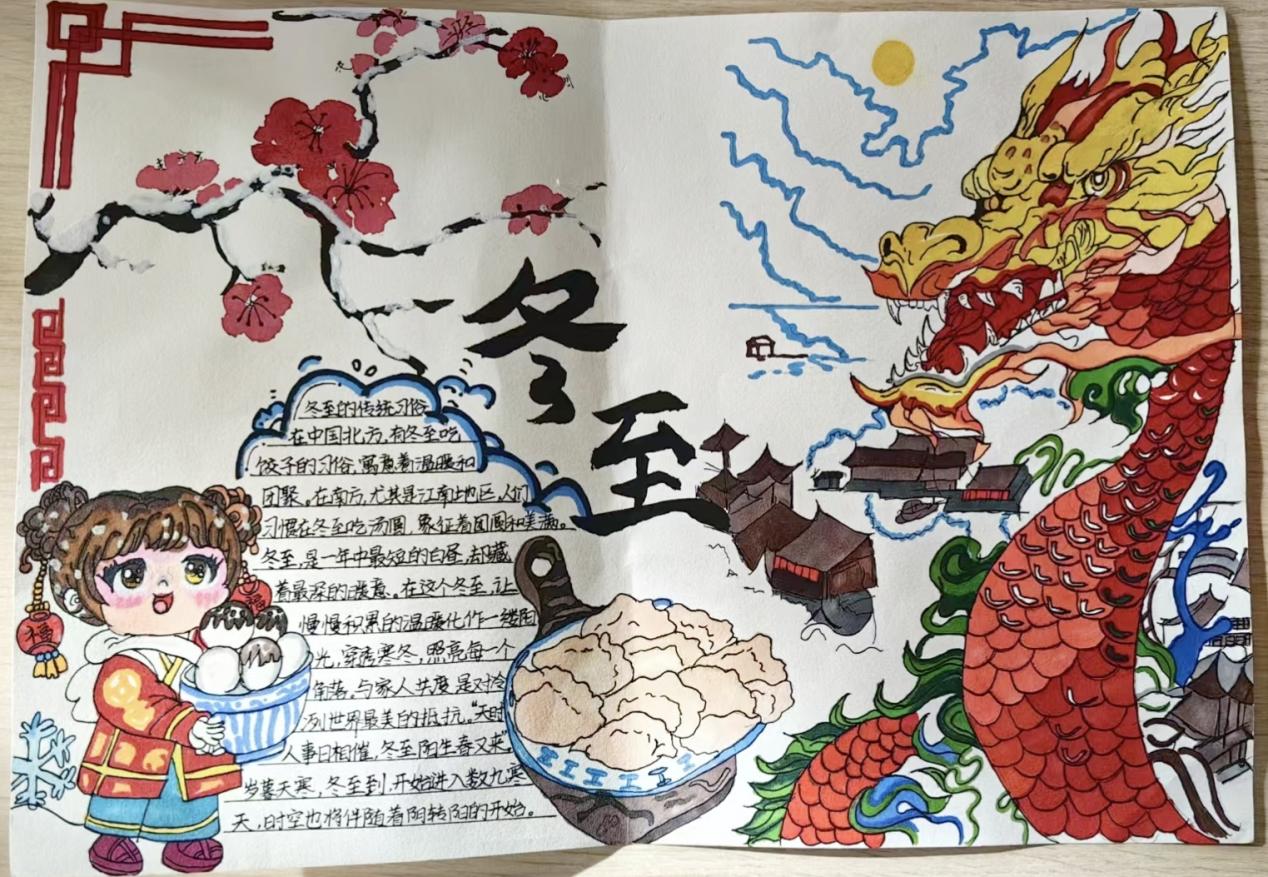 冬至
冬至的传统习俗
在中国北方,有冬至吃
饺子的习俗,寓意着温暖和
团聚。在南方,尤其是江南地区,人们
习惯在冬至吃汤圆,象征着团圆和美满。
冬至,是一年中最短的白昼,却藏
着最深的暖意。在这个冬至,让
慢慢积累的温暖化作一缕阳
光,穿透寒冬,照亮每一个
角落,与家人共度是对冷
冽世界最美的抵抗。“天时
人事日相催,冬至阳生春又来”
岁暮天寒,冬至到,开始进入数九寒
天,时空也将伴随着阴转阳的开始。
福
福